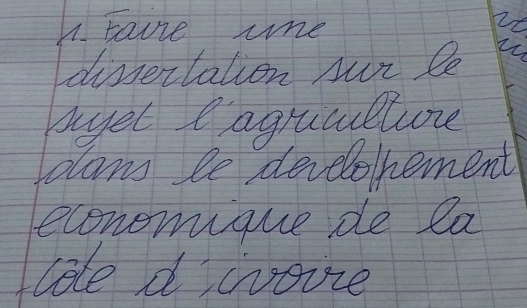 1. Faire une
dissertation sur le
sujet l'agriculture
dans le develolpement
economique de la
côte d'ivoire